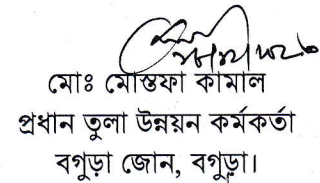 মোঃ মোস্তফা কামাল
প্রধান তুলা উন্নয়ন কর্মকর্তা
বগুড়া জোন, বগুড়া।